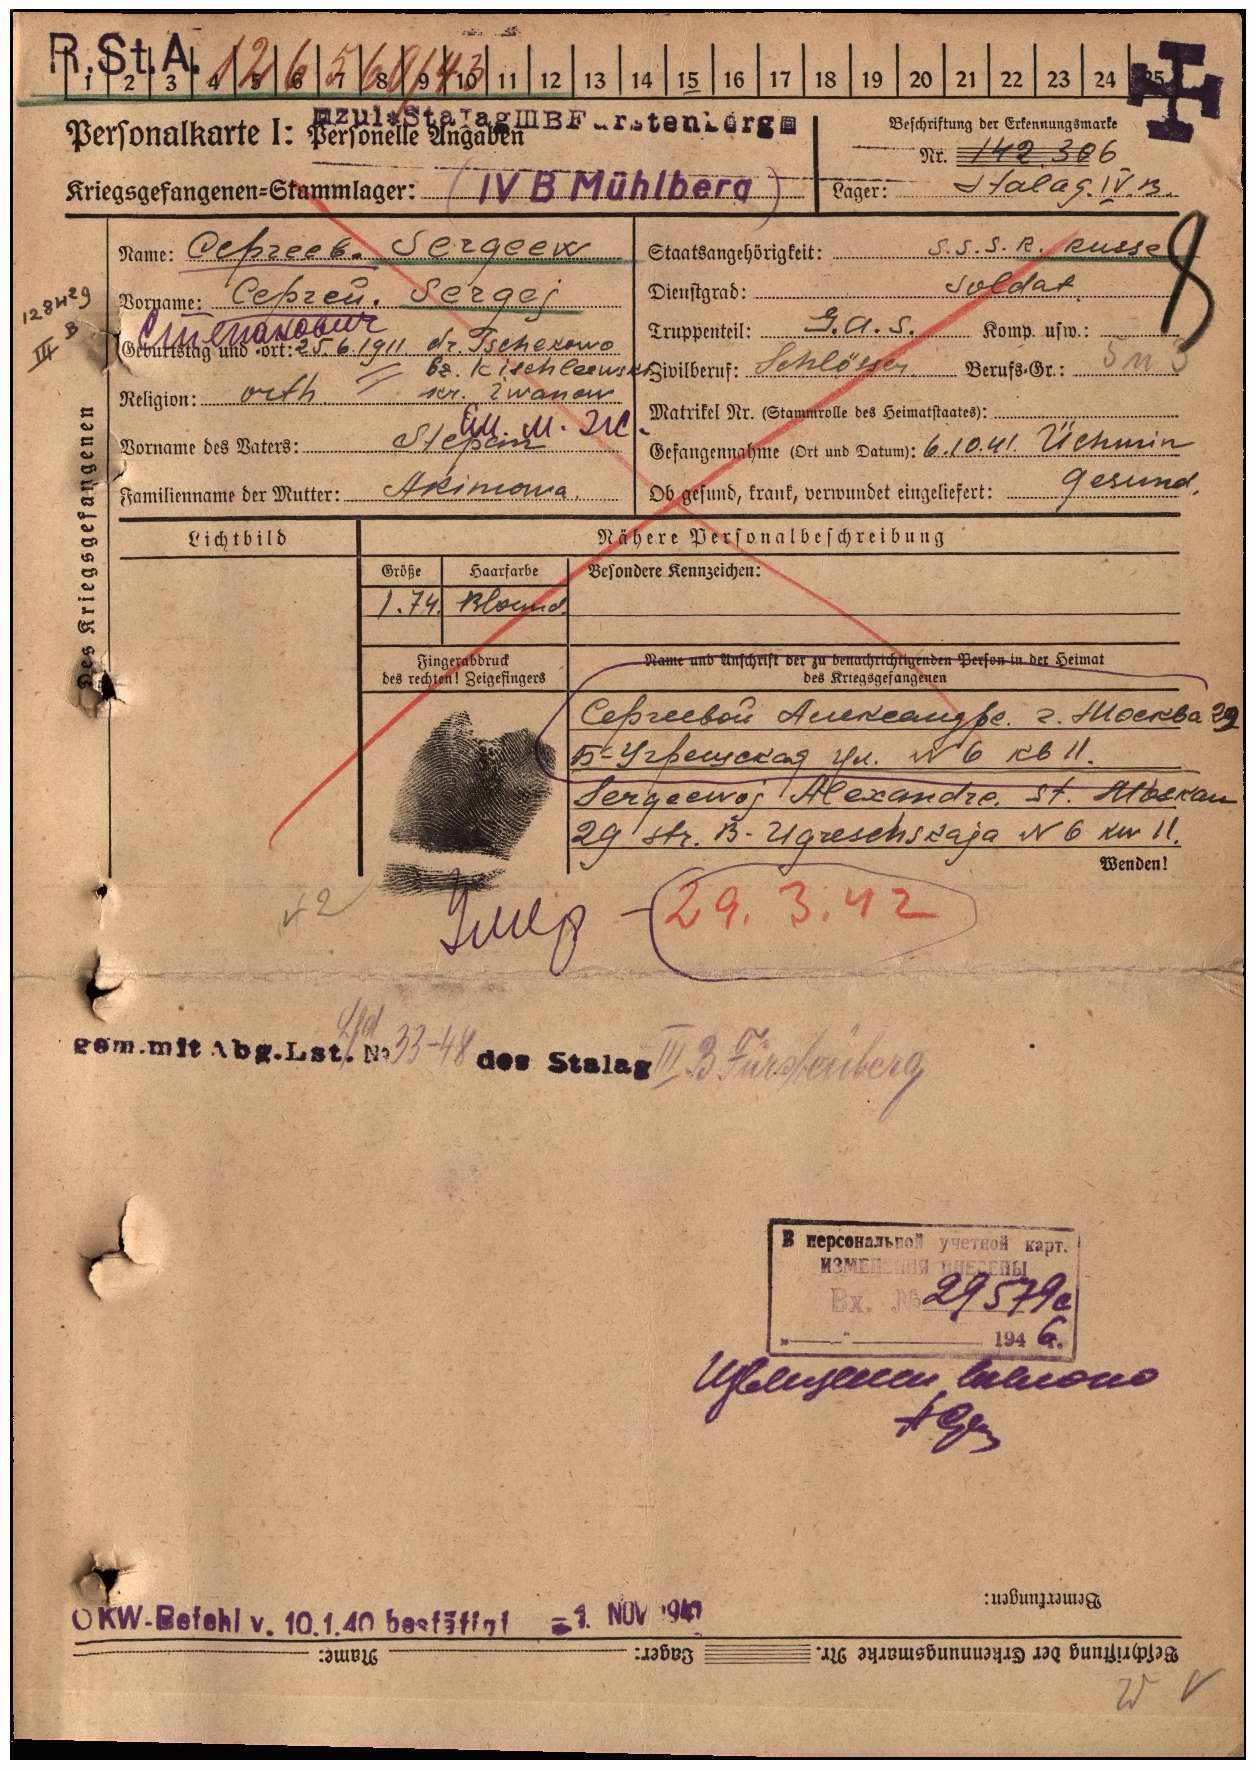 R.St.A. 126560/43
1 2 3 4 5 6 7 8 9 10 11 12 13 14 15 16 17 18 19 20 21 22 23 24 25
zul. Stalag III B Fürstenberg
Personalkarte I: Personelle Angaben
Kriegsgefangenen-Stammlager: (IV B Mühlberg)
Beschriftung der Erkennungsmarke
Nr. 142 306
Lager: Stalag. IV. B.
8
128429
III B
Des Kriegsgefangenen
Name: Сергеев. Sergeew
Vorname: Сергей. Sergej
Степанович
Geburtstag und -ort: 25.6.1911 dr. Tschekowo
bz. Kischleewski
Religion: orth kr. Iwanow
Вл. М. Ж.
Vorname des Vaters: Stepan
Familienname der Mutter: Akimowa.
Staatsangehörigkeit: S.S.S.R. Russe
Dienstgrad: Soldat
Truppenteil: G.A.S. Komp. usw.:
Zivilberuf: Schlösser Berufs-Gr.:
Matrikel Nr. (Stammrolle des Heimatstaates):
Gefangennahme (Ort und Datum): 6.10.41. Üchmin
Ob gesund, krank, verwundet eingeliefert: gesund.
Lichtbild
Nähere Personalbeschreibung
Größe Haarfarbe Besondere Kennzeichen:
1.74. Blound.
Fingerabdruck
des rechten! Zeigefingers
Name und Anschrift der zu benachrichtigenden Person in der Heimat
des Kriegsgefangenen
Сергеевой Александре. г. Москва 29
Б-Угрешская ул. N 6 кв 11.
Sergeewoj Alexandre. st. Moskau
29 str. B-Ugreschskaja N 6 kw 11.
Wenden!
Умер - 29.3.42
gem. mit Abg. Lst. Lfd № 33-48 des Stalag III B Fürstenberg
В персональной учетной карт.
ИЗМЕНЕНИЯ ВНЕСЕНЫ
Вх. № 29579с
„ “ 1946 г.
OKW-Befehl v. 10.1.40 bestätigt
Bemerkungen:
Name: Lager: Beschriftung der Erkennungsmarke Nr.